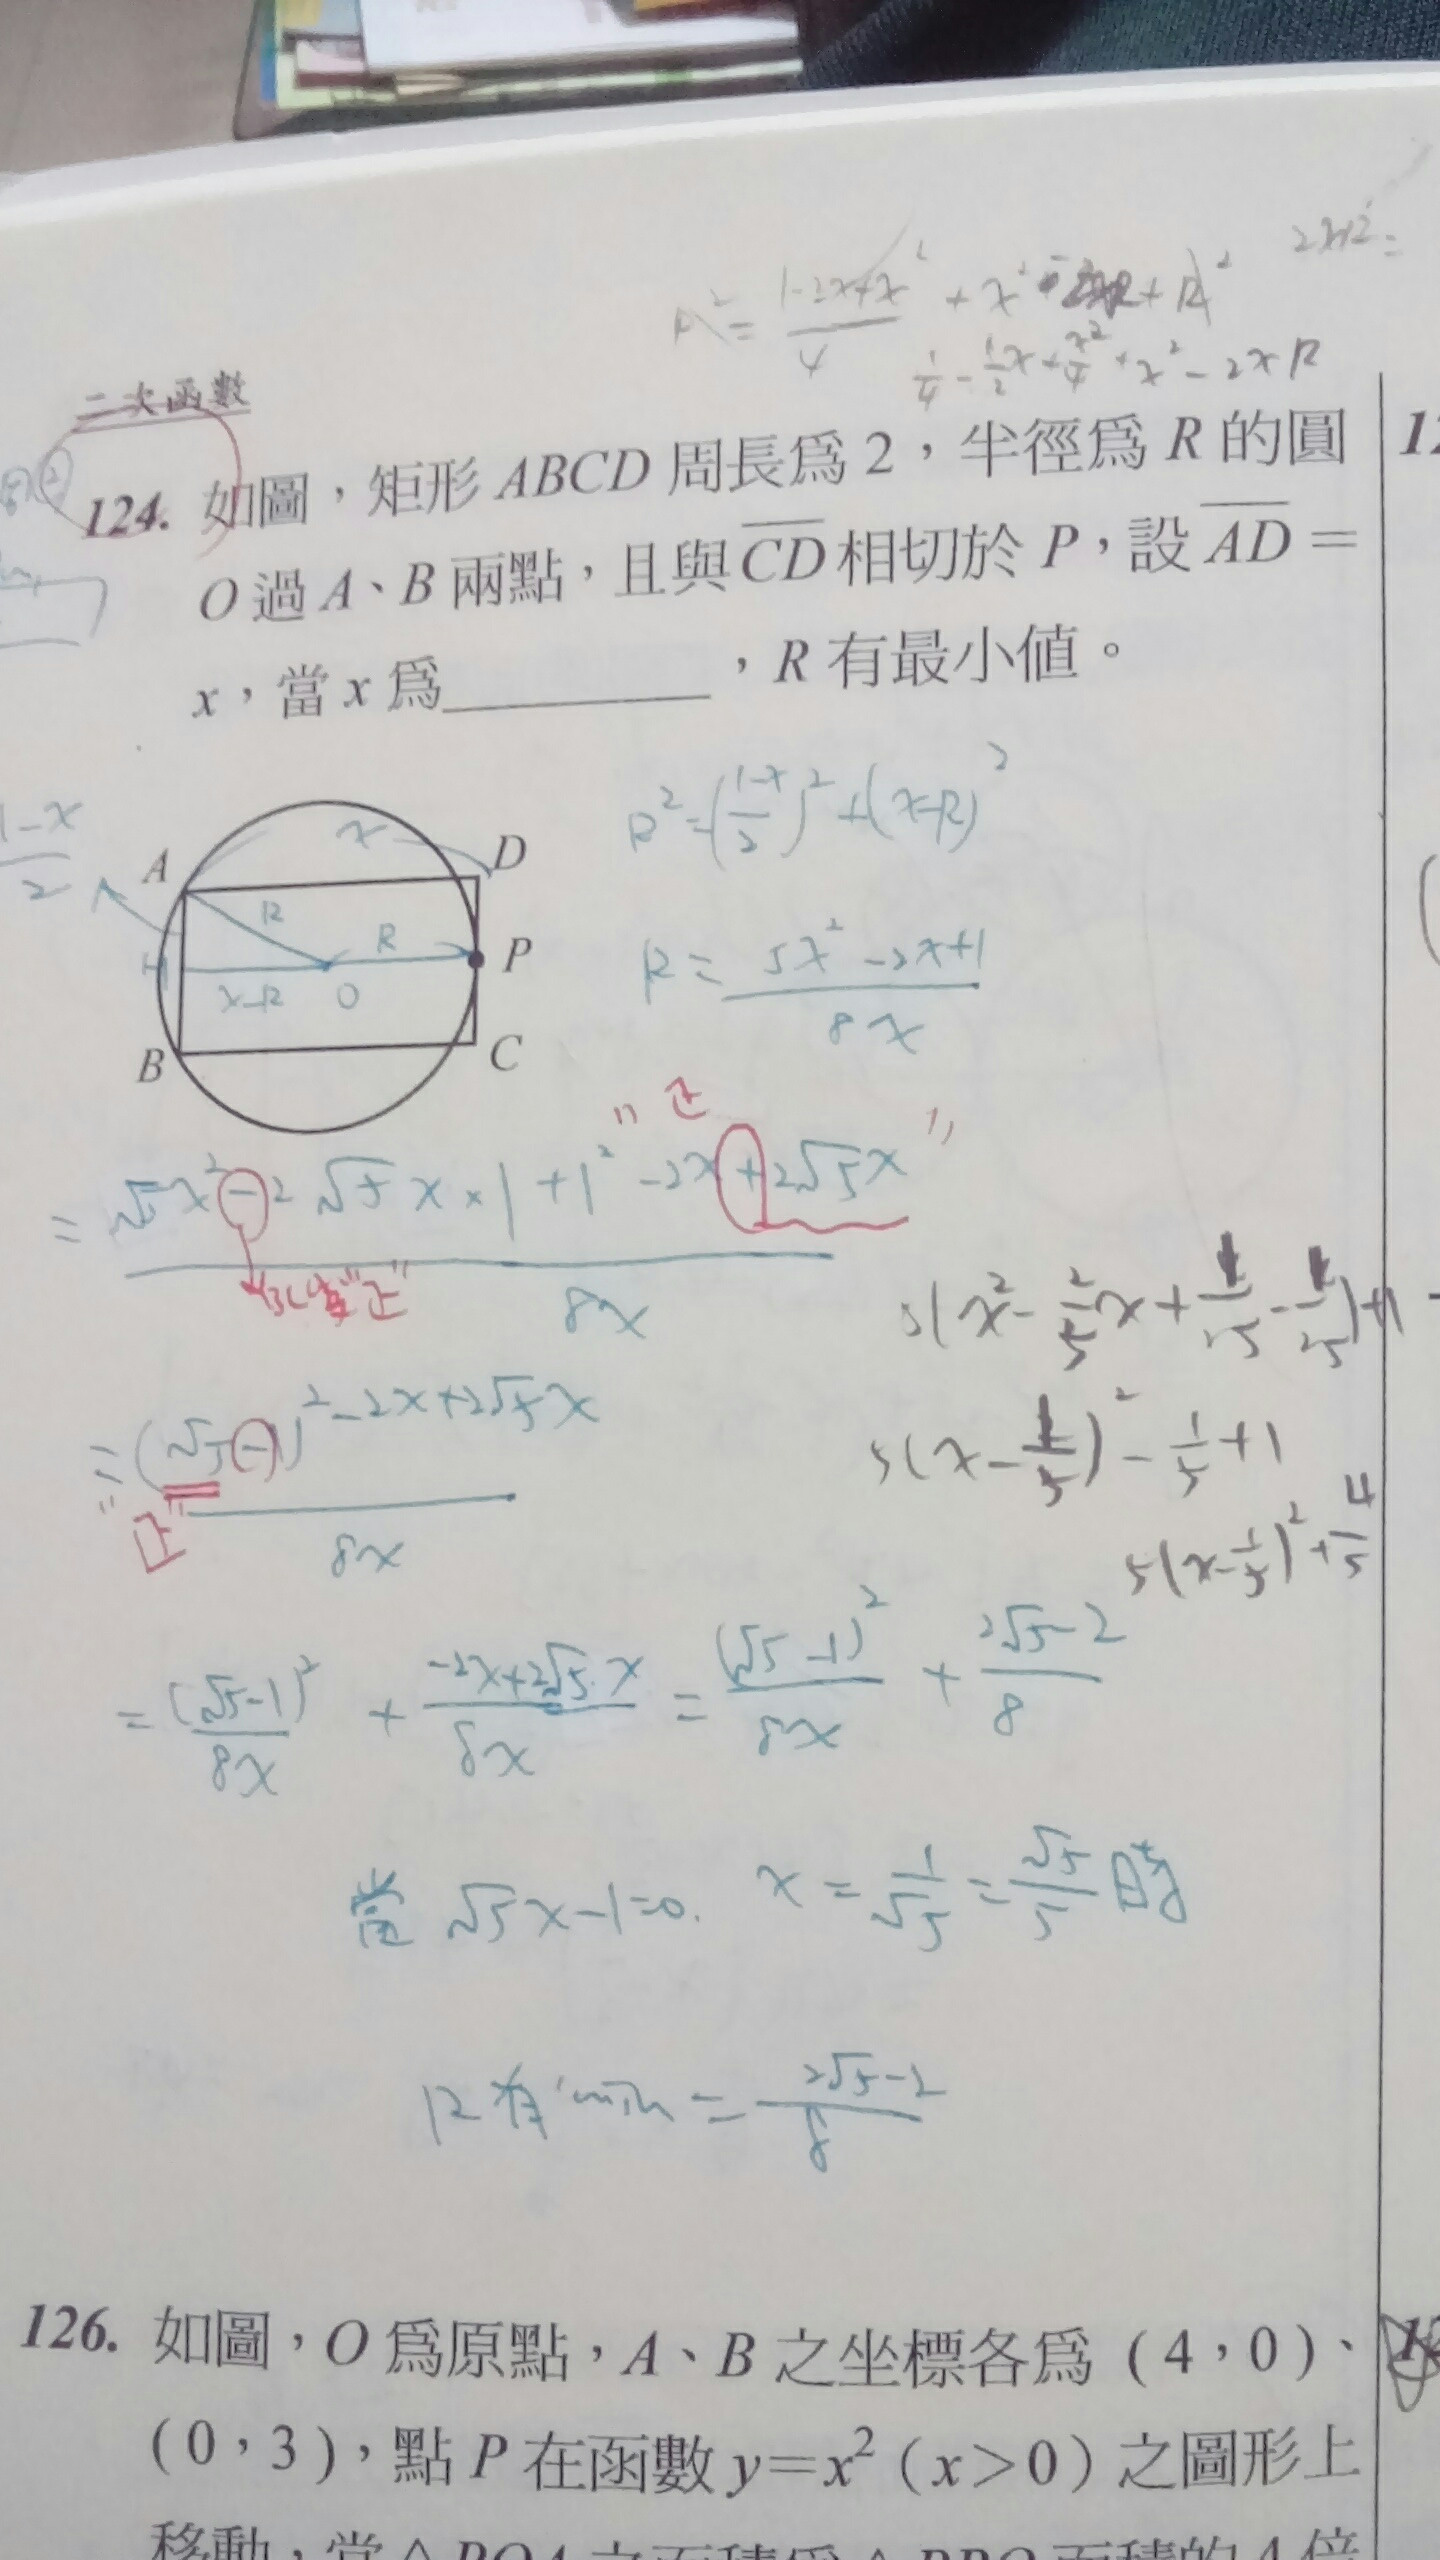 2x+2=
R² = (1-2x+x²)/4 + x² + R²
1/4 - 1/2x + x²/4 + x² - 2xR
二次函數
124. 如圖，矩形 ABCD 周長為 2，半徑為 R 的圓
O 過 A、B 兩點，且與 CD 相切於 P，設 AD =
x，當 x 為________，R 有最小值。
R² = ((1-x)/2)² + (x-R)²
(1-x)/2
A x D
R R P
H x-R O
B C
R = (5x² - 2x + 1)/8x
"正"
= (√5x² - 2√5x × 1 + 1² - 2x + 2√5x)/8x
"正"
5(x² - 2/5x + 1/25 - 1/25) + 1
= ((√5 - 1)² - 2x + 2√5x)/8x
"正"
5(x - 1/5)² - 1/5 + 1
5(x - 1/5)² + 4/5
= (√5-1)²/8x + (-2x+2√5x)/8x = (√5-1)²/8x + (2√5-2)/8
當 √5x-1=0. x = 1/√5 = √5/5 時
R 有 min = (2√5-2)/8
126. 如圖，O 為原點，A、B 之坐標各為 (4，0)、
(0，3)，點 P 在函數 y=x² (x>0) 之圖形上